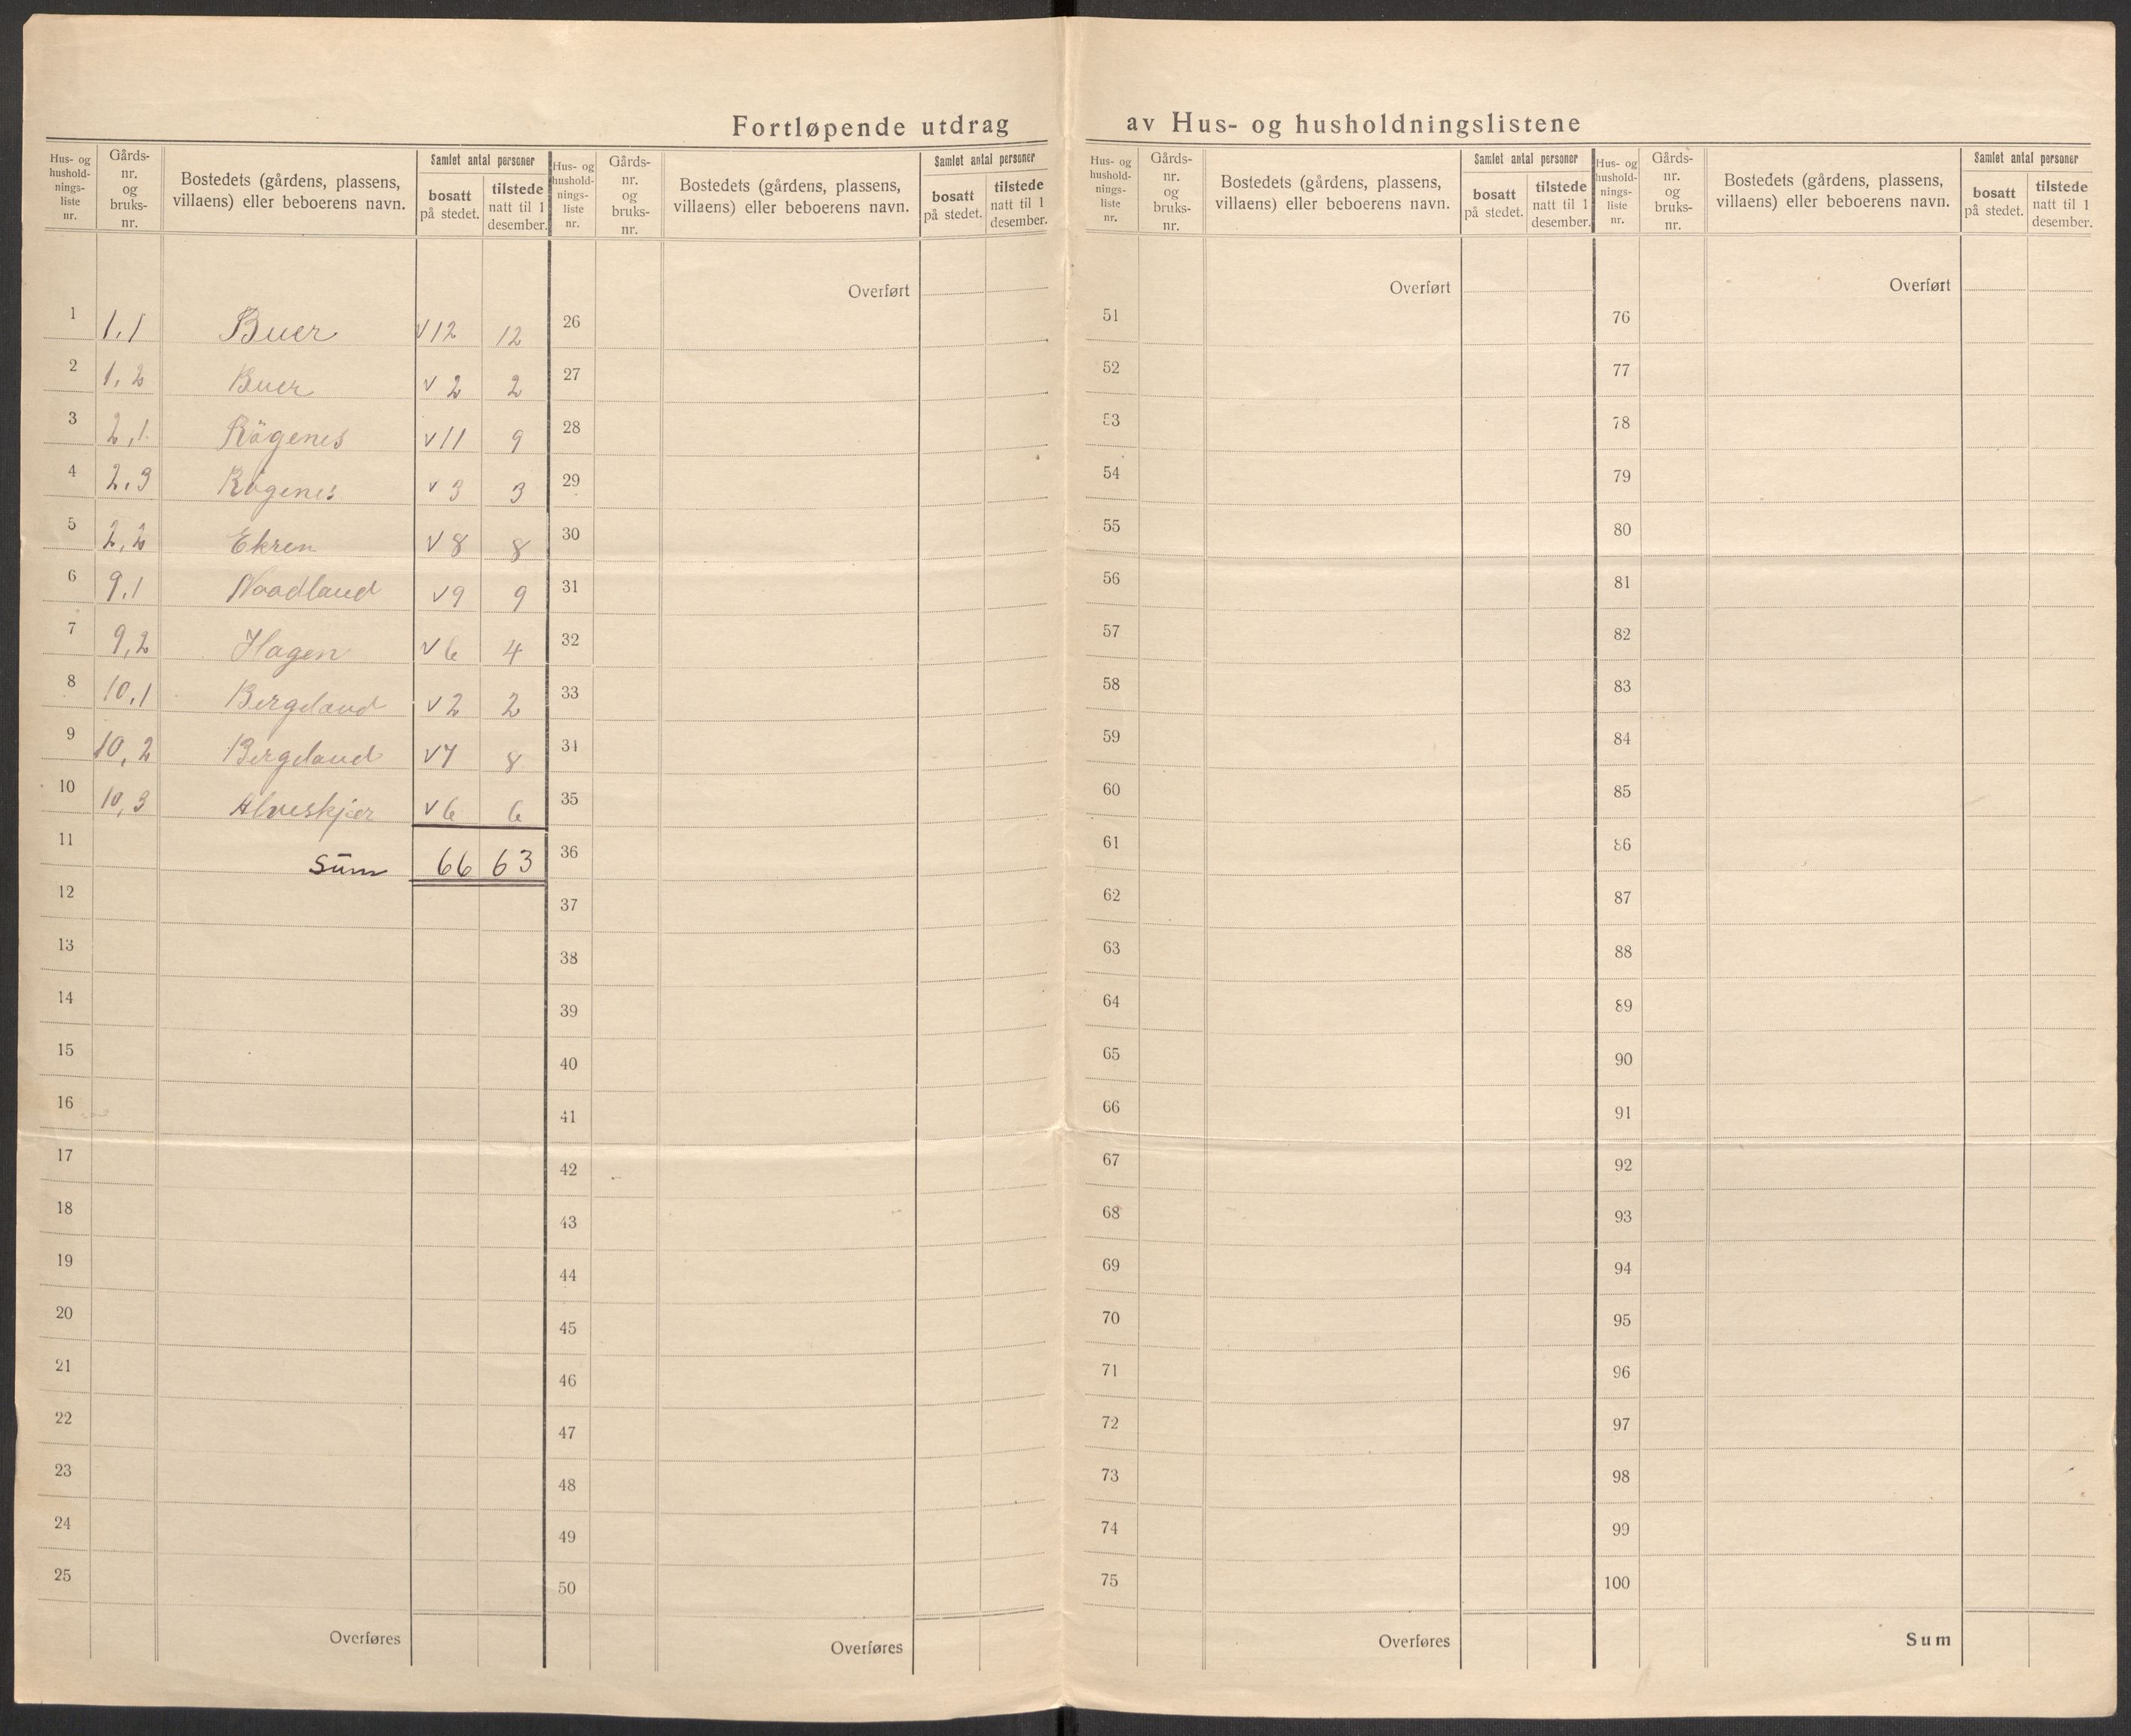 Fortløpende utdrag av Hus- og husholdningslistene
Hus- og
hushold-
nings-
liste
nr.
Gårds-
nr.
og
bruks-
nr.
Bostedets (gårdens, plassens,
villaens) eller beboerens navn.
Samlet antal personer
bosatt
på stedet.
tilstede
natt til 1
desember.
1 1,1 Buer v 12 12
2 1,2 Buer v 2 2
3 2,1 Rögenes v 11 9
4 2,3 Rögenes v 3 3
5 2,2 Ekren v 8 8
6 9,1 Noadland v 9 9
7 9,2 Hagen v 6 4
8 10,1 Bergeland v 2 2
9 10,2 Bergeland v 7 8
10 10,3 Alveskjer v 6 6
11 Sūm 66 63
12
13
14
15
16
17
18
19
20
21
22
23
24
25
Overføres
Hus- og
hushold-
nings-
liste
nr.
Gårds-
nr.
og
bruks-
nr.
Bostedets (gårdens, plassens,
villaens) eller beboerens navn.
Samlet antal personer
bosatt
på stedet.
tilstede
natt til 1
desember.
Overført
26
27
28
29
30
31
32
33
34
35
36
37
38
39
40
41
42
43
44
45
46
47
48
49
50
Overføres
Hus- og
hushold-
nings-
liste
nr.
Gårds-
nr.
og
bruks-
nr.
Bostedets (gårdens, plassens,
villaens) eller beboerens navn.
Samlet antal personer
bosatt
på stedet.
tilstede
natt til 1
desember.
Overført
51
52
53
54
55
56
57
58
59
60
61
62
63
64
65
66
67
68
69
70
71
72
73
74
75
Overføres
Hus- og
hushold-
nings-
liste
nr.
Gårds-
nr.
og
bruks-
nr.
Bostedets (gårdens, plassens,
villaens) eller beboerens navn.
Samlet antal personer
bosatt
på stedet.
tilstede
natt til 1
desember.
Overført
76
77
78
79
80
81
82
83
84
85
86
87
88
89
90
91
92
93
94
95
96
97
98
99
100
Sum